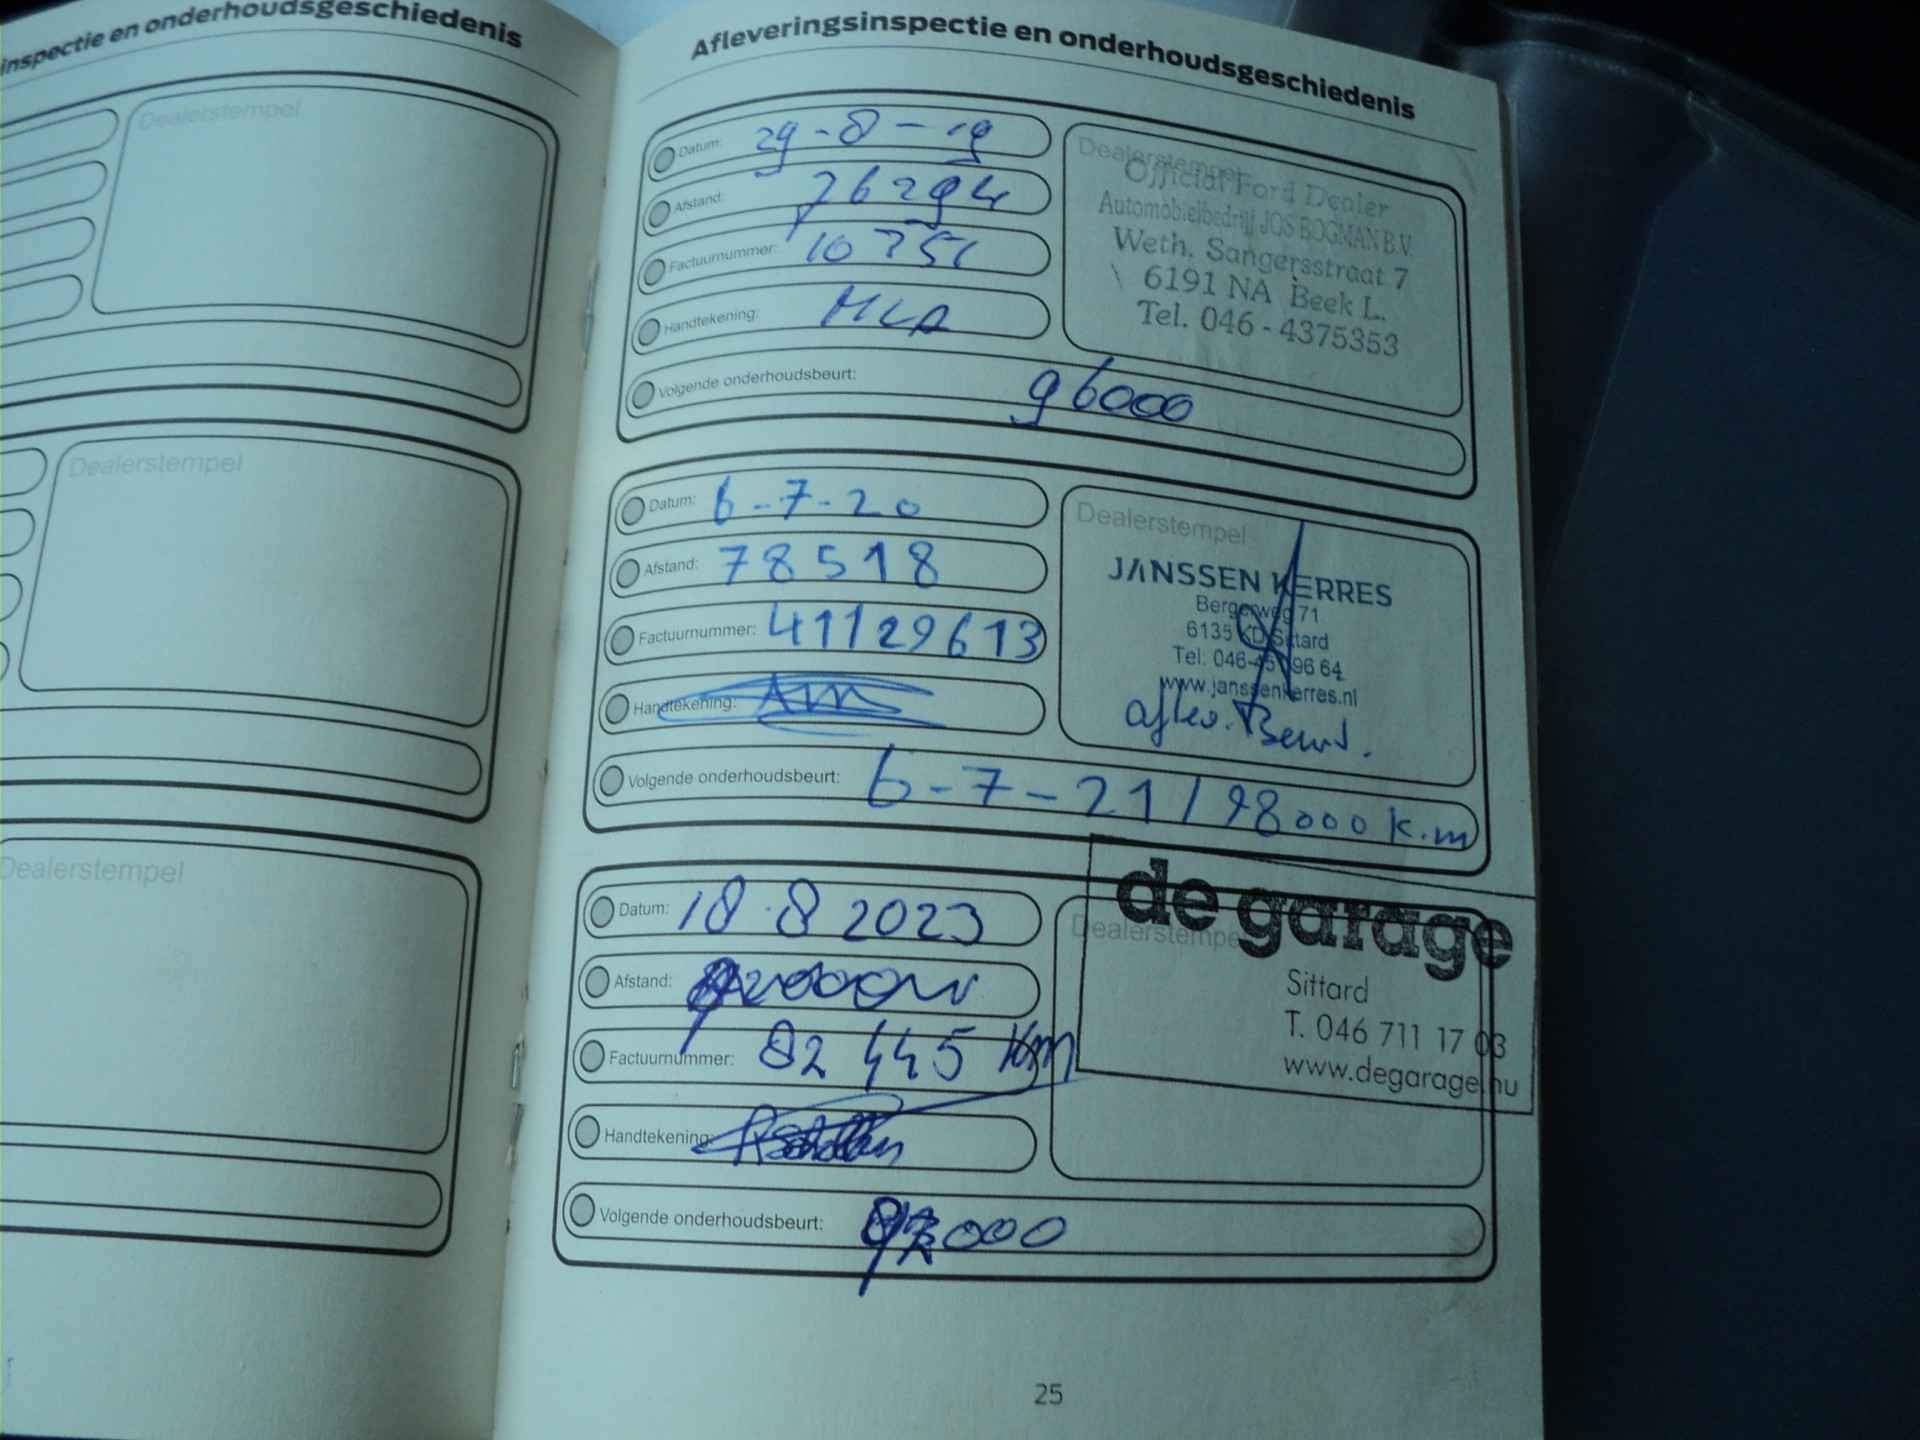 inspectie en onderhoudsgeschiedenis
Dealerstempel
Dealerstempel
Dealerstempel
Afleveringsinspectie en onderhoudsgeschiedenis
Datum: 29-8-19
Afstand: 76294
Factuurnummer: 10751
Handtekening:
Volgende onderhoudsbeurt: 96000
Dealerstempel
Official Ford Dealer
Automobielbedrijf JOS BOGMAN B.V.
Weth. Sangersstraat 7
6191 NA Beek L.
Tel. 046-4375353
Datum: 6-7-20
Afstand: 78518
Factuurnummer: 41129613
Handtekening:
Volgende onderhoudsbeurt: 6-7-21/98000 k.m
Dealerstempel
JANSSEN KERRES
Bergerweg 71
6135 KD Sittard
Tel: 046- 96 64
www.janssenkerres.nl
aflev. Beurt.
Datum: 18-8 2023
Afstand:
Factuurnummer: 82 445 Km
Handtekening:
Volgende onderhoudsbeurt:
Dealerstempel
de garage
Sittard
T. 046 711 17 03
www.degarage.nu
25